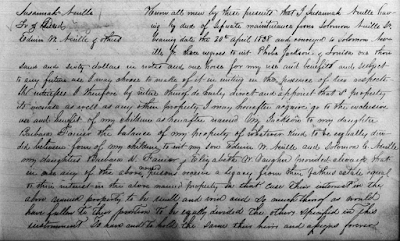 Susannah Neville Know all men by these presents that I Susannah Neville have
To } Deed by deed of seperate maintainance from Solomon Neville Sr.
Edwin W Neville & others bearing date the 20th April 1838 and conveyed to solomon Nev-
ille Jr. two negroes to wit Phila Jackson & Louisa one thou
sand and sixty dollars in notes and one horse for my use and benefit and subject
to any future use I may choose to make of it in writing in the presence of two
witnesses I therefore by virtue of said deed direct and appoint that sd property
to increase as well as any other property I may hereafter acquire go to the exclusive
use and benefit of my children as hereafter named my to my daughter
Barbara Farrior the balance of my property of whatever kind to be equally div-
ided between four of my children to wit my son Edwin W Neville and Solomon C Neville
my daughters Barbara M. Farrior & Elizabeth W Vaughn provided always that
in case any of the above persons receive a legacy from their fathers estate equal
to their interest in the above named property in that case their interest in the
above named property to be null and void and so much thereof as would
have fallen to their portion to be equally divided the others specified in this
instrument. To have and to hold the same their heirs and assigns forever